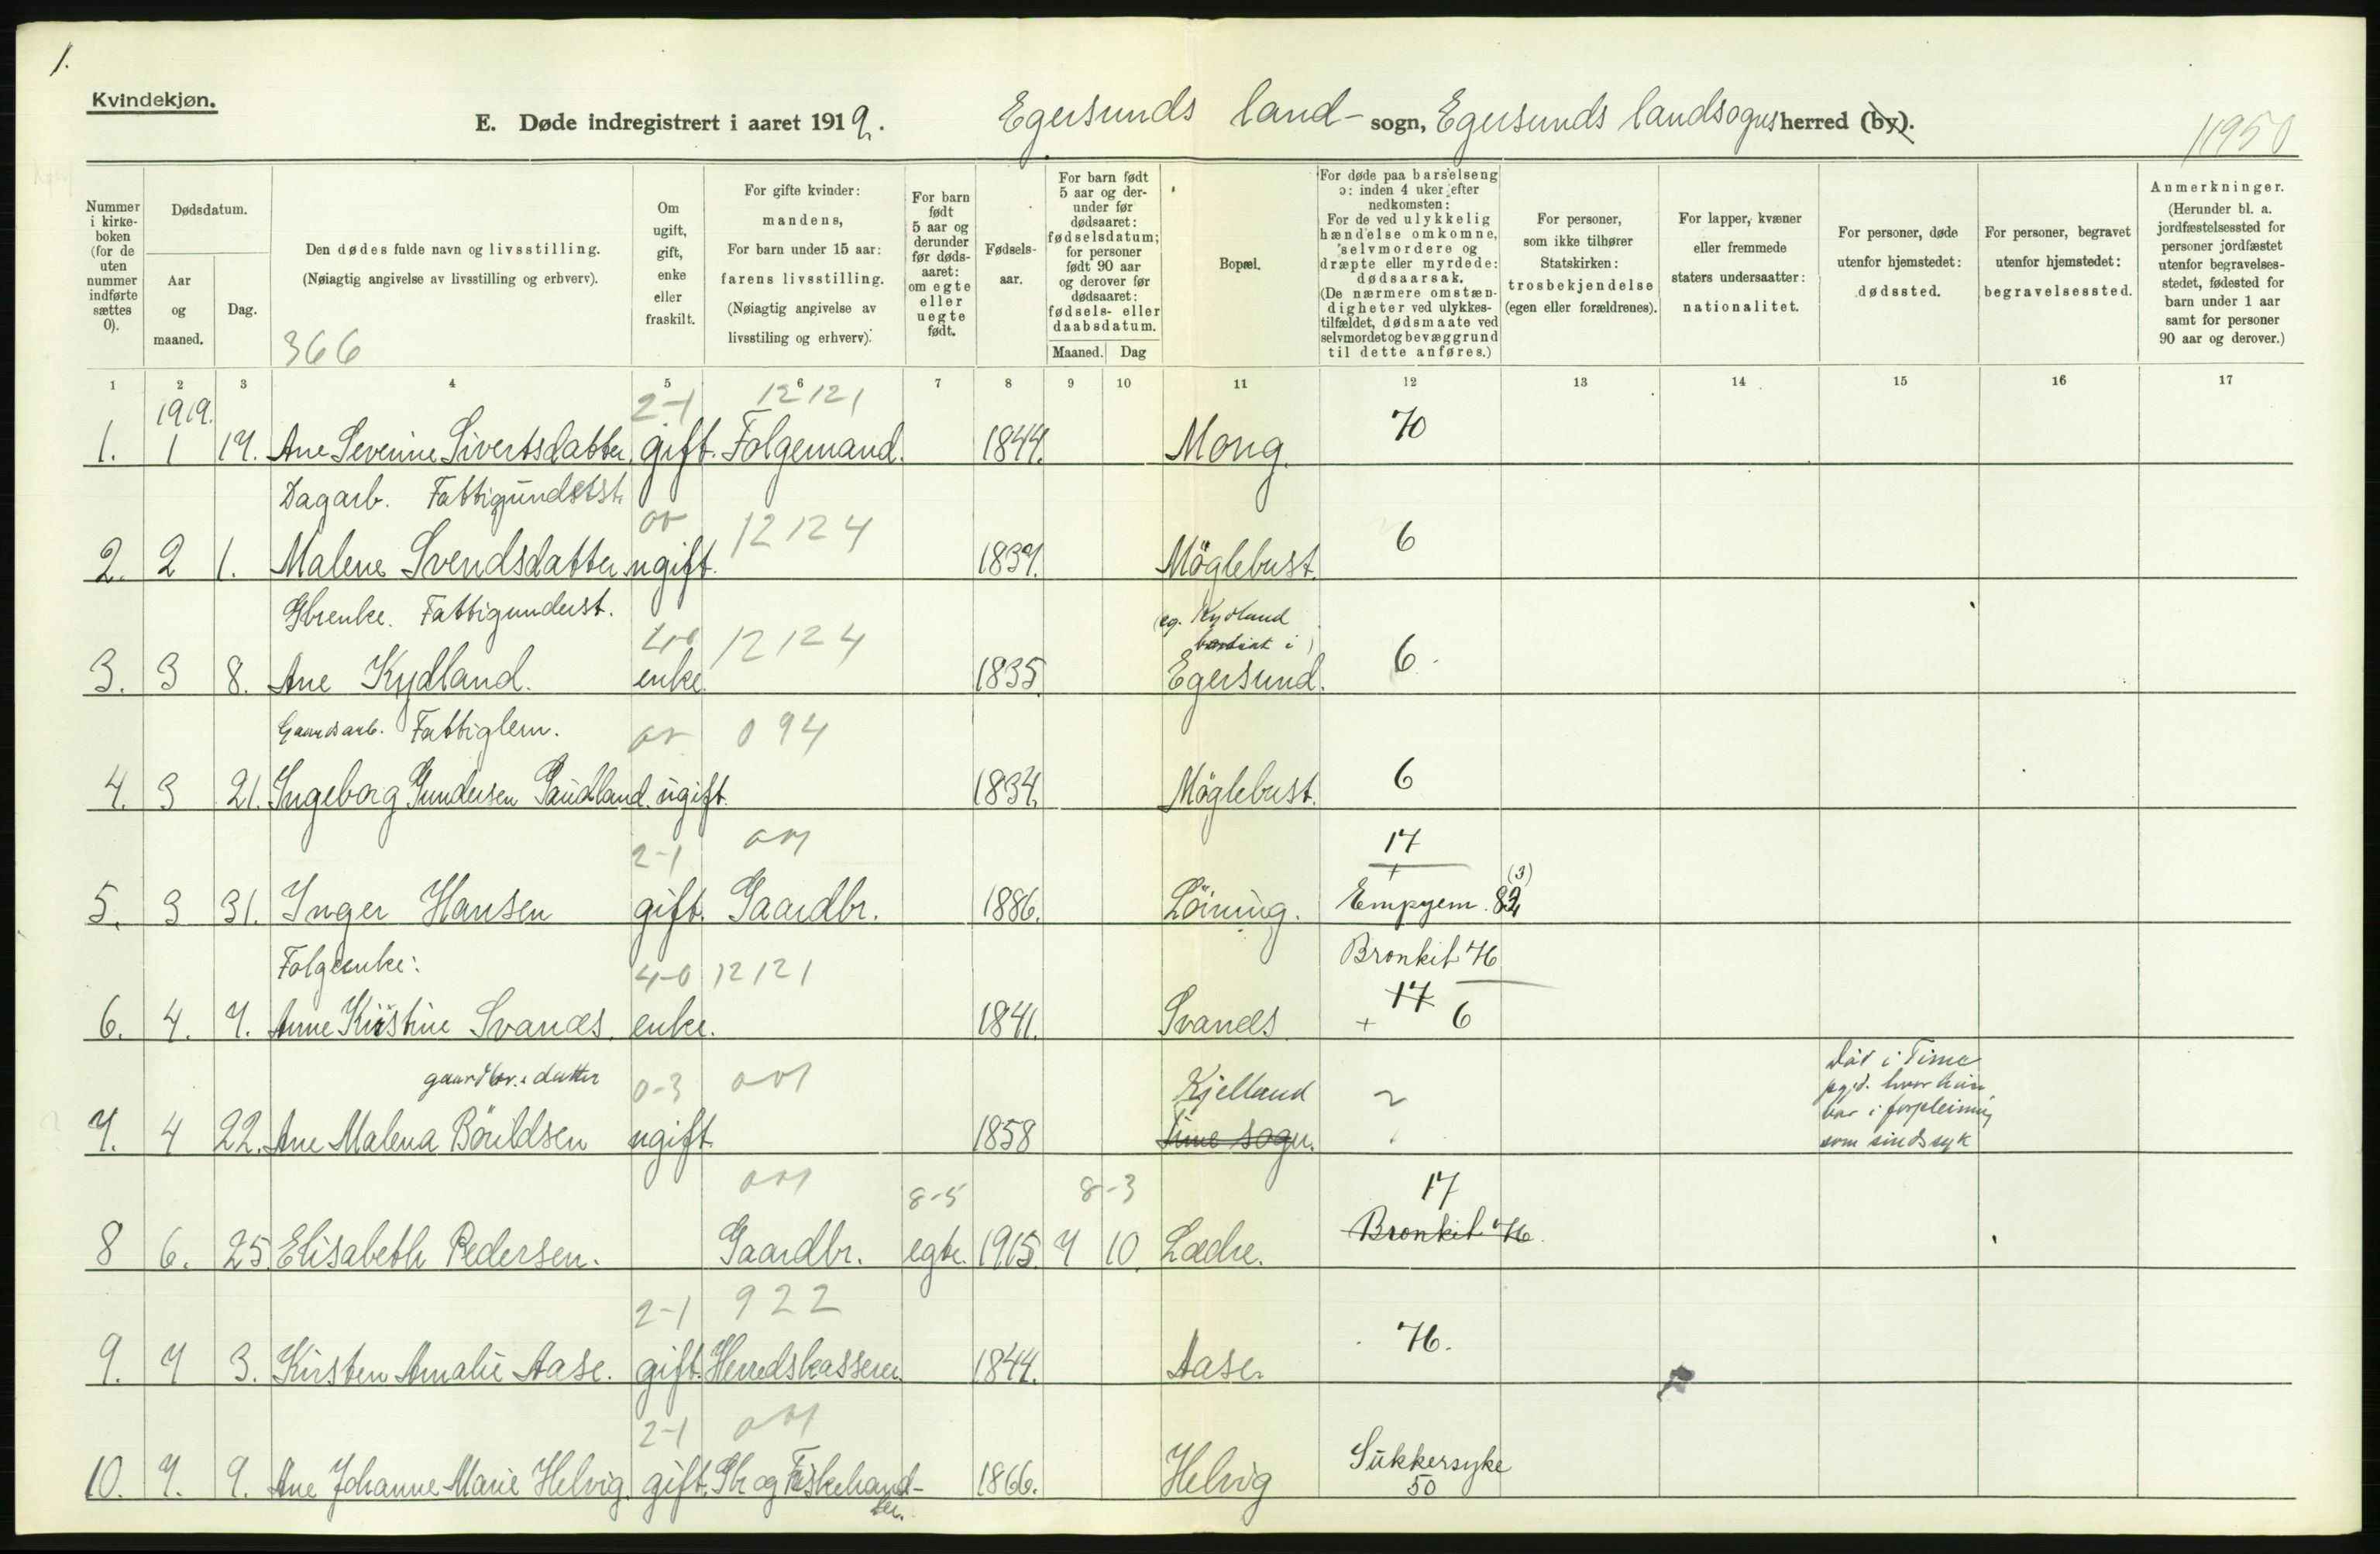 1.
Kvindekjøn.
E. Døde indregistrert i aaret 1919.
Egersunds land-sogn, Egersunds landsognsherred (by).
11950
Nummer i kirkeboken (for de uten nummer indførte sættes 0).
Dødsdatum.
Aar og maaned.
Dag.
Den dødes fulde navn og livsstilling.
(Nøiagtig angivelse av livsstilling og erhverv).
366
Om ugift, gift, enke eller fraskilt.
For gifte kvinder: mandens,
For barn under 15 aar: farens livsstilling.
(Nøiagtig angivelse av livsstiling og erhverv).
For barn født 5 aar og derunder før dødsaaret: om egte eller uegte født.
Fødselsaar.
For barn født 5 aar og derunder før dødsaaret: fødselsdatum; for personer født 90 aar og derover før dødsaaret: fødsels- eller daabsdatum.
Maaned.
Dag
Bopæl.
For døde paa barselseng ɔ: inden 4 uker efter nedkomsten:
For de ved ulykkelig hændelse omkomne, selvmordere og dræpte eller myrdede: dødsaarsak.
(De nærmere omstændigheter ved ulykkestilfældet, dødsmaate ved selvmordet og bevæggrund til dette anføres.)
For personer, som ikke tilhører Statskirken: trosbekjendelse (egen eller forældrenes).
For lapper, kvæner eller fremmede staters undersaatter: nationalitet.
For personer, døde utenfor hjemstedet: dødssted.
For personer, begravet utenfor hjemstedet: begravelsessted.
Anmerkninger.
(Herunder bl. a. jordfæstelsessted for personer jordfæstet utenfor begravelsesstedet, fødested for barn under 1 aar samt for personer 90 aar og derover.)
1 2 3 4 5 6 7 8 9 10 11 12 13 14 15 16 17
1919.
2-1 12121
1. 1 17. Ane Severine Sivertsdatter gift. Folgemand. 1844. Mong. 70
Dagarb. Fattigundstst.
12124
2. 2 1. Malene Svendsdatter ugift. 1837. Möglebust. 6
Gbrenke. Fattigunderst.
4-0 12124
(eg. Kydland
i)
3. 3 8. Ane Kydland. enke. 1835. Egersund. 6.
Gaardsarb. Fattiglem.
094
4. 3 21. Ingeborg Gundersen Saudland. ugift. 1834. Möglebust. 6
2-1
17
(3)
5. 3 31. Inger Hansen gift. Gaardbr. 1886. Löining. Empyem. 82
Folgeenke:
4-0 12121
Bronkit 76
17 6
6. 4. 7. Anne Kristine Svanes. enke. 1841. Svanes
gaardbr.s datter
0-3
Kjelland
2
Död i Time
pgjd. hvor hun
var i forpleining
som sindssyk
7. 4 22. Ane Malena Böildsen ugift. 1858 Time sogn.
8-5 8-3
17
8 6. 25. Elisabeth Pedersen. Gaardbr. egte. 1915. 7 10. Lædre. Bronkit 76.
2-1 922
9. 7 3. Kirsten Amalie Aase. gift. Herredskasserer. 1844. Aase. 76.
2-1
10. 7. 9. Ane Johanne Marie Helvig. gift. Gbr og Fiskehand-
ler.
1866. Helvig Sukkersyke
50